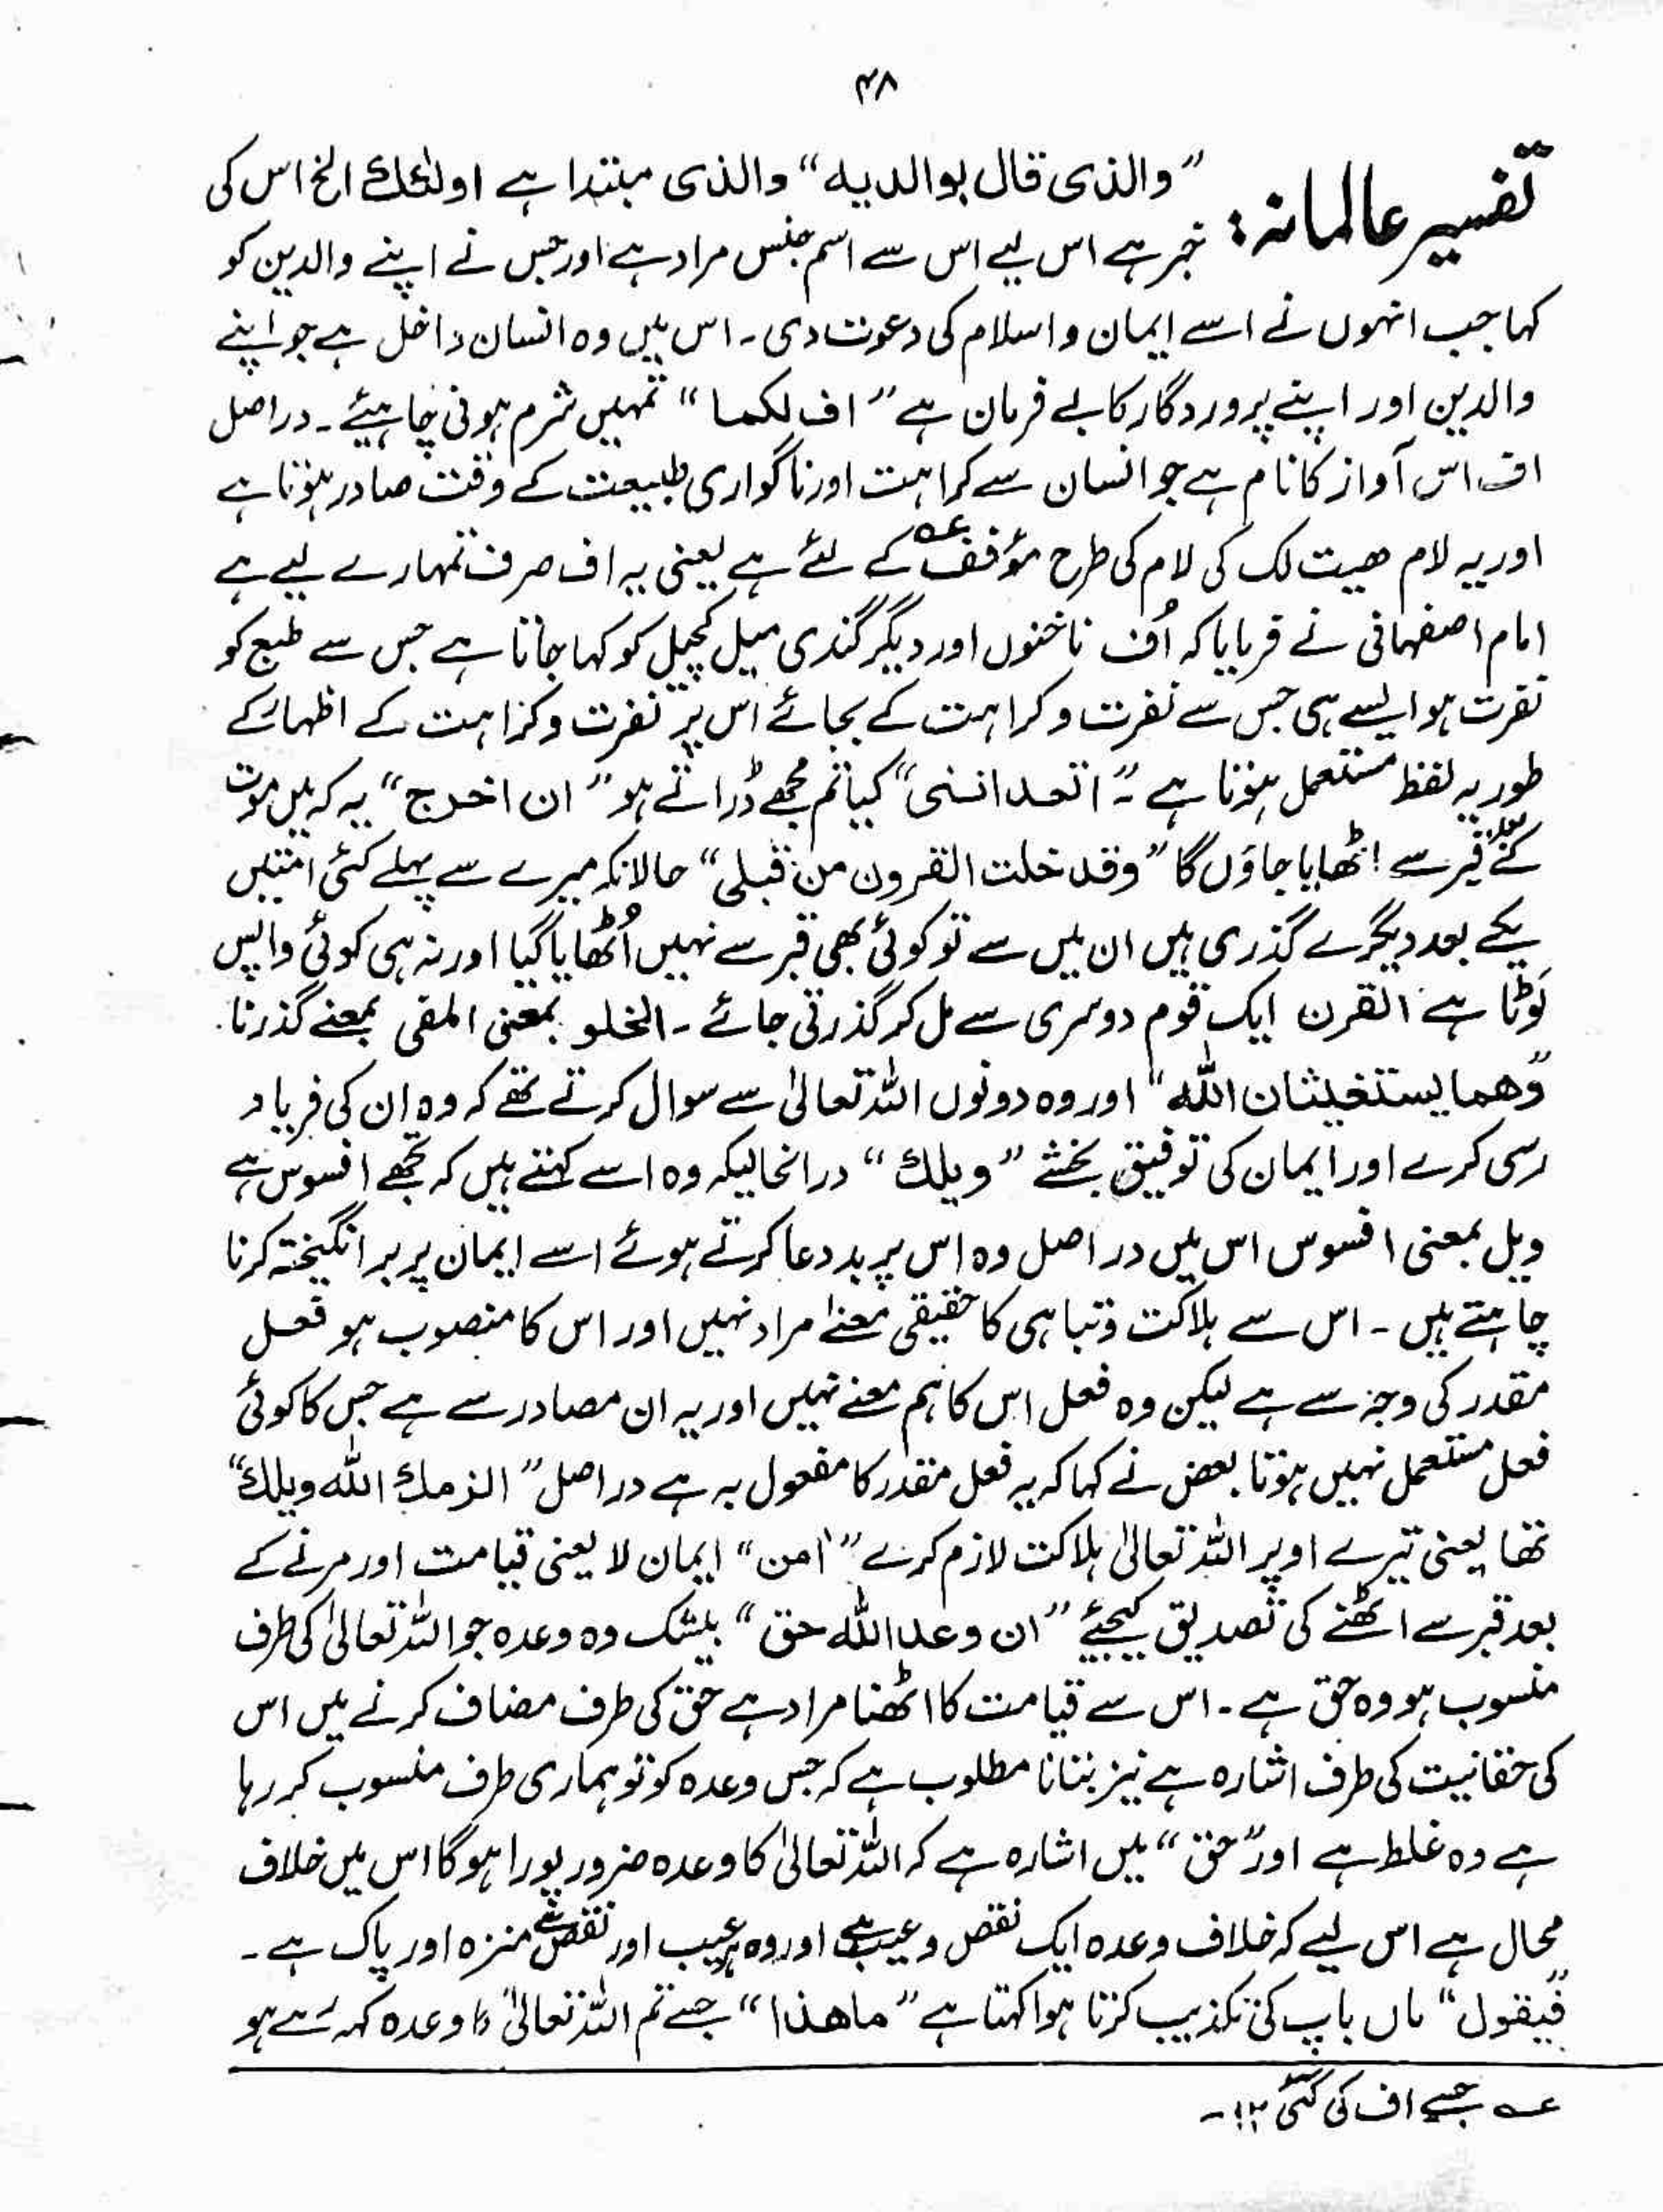 ۴۸
تفسیر عالمانہ:
”والذی قال بوالدیہ“ والذی مبتدا ہے اولئک الخ اس کی
خبر ہے اس لیے اس سے اسم جنس مراد ہے اور جس نے اپنے والدین کو
کہا جب انہوں نے اسے ایمان و اسلام کی دعوت دی۔ اس میں وہ انسان داخل ہے جو اپنے
والدین اور اپنے پروردگار کا بے فرمان ہے ”اف لکما“ تمہیں شرم ہونی چاہیئے۔ دراصل
اف اس آواز کا نام ہے جو انسان سے کراہت اور ناگواری طبیعت کے وقت صادر ہوتا ہے
اور یہ لام ھیت لک کی لام کی طرح مؤفف عہ کے لئے ہے یعنی یہ اف صرف تمہارے لیے ہے
امام اصفہانی نے فرمایا کہ اُف ناخنوں اور دیگر گندی میل کچیل کو کہا جاتا ہے جس سے طبع کو
نفرت ہو ایسے ہی جس سے نفرت و کراہت کے بجائے اس پر نفرت و کراہت کے اظہار کے
طور یہ لفظ مستعمل ہوتا ہے۔ ”اتعداننی“ کیا تم مجھے ڈراتے ہو ”ان اخرج“ یہ کہ میں موت
کے بعد قبر سے اٹھایا جاؤں گا ”وقد خلت القرون من قبلی“ حالانکہ میرے سے پہلے کئی امتیں
یکے بعد دیگرے گذری ہیں ان میں سے تو کوئی بھی قبر سے نہیں اُٹھایا گیا اور نہ ہی کوئی واپس
لَوٹا ہے القرن ایک قوم دوسری سے مل کر گذرتی جائے۔ الخلو بمعنی المقی بمعنے گذرنا۔
”وھما یستغیثان اللہ“ اور وہ دونوں اللہ تعالیٰ سے سوال کرتے تھے کہ وہ ان کی فریاد
رسی کرے اور ایمان کی توفیق بخشے ”ویلک“ درانحالیکہ وہ اسے کہتے ہیں کہ تجھے افسوس ہے
ویل بمعنی افسوس اس میں دراصل وہ اس پر بددعا کرتے ہوئے اسے ایمان پر برانگیختہ کرنا
چاہتے ہیں۔ اس سے ہلاکت و تباہی کا حقیقی معنےٰ مراد نہیں اور اس کا منصوب ہو فعل
مقدر کی وجہ سے ہے لیکن وہ فعل اس کا ہم معنے نہیں اور یہ ان مصادر سے ہے جس کا کوئی
فعل مستعمل نہیں ہوتا بعض نے کہا کہ یہ فعل مقدر کا مفعول بہ ہے دراصل ”الزمک اللہ ویلک“
تھا یعنی تیرے اوپر اللہ تعالیٰ ہلاکت لازم کرے ”اٰمن“ ایمان لا یعنی قیامت اور مرنے کے
بعد قبر سے اٹھنے کی تصدیق کیجئے ”ان وعد اللہ حق“ بیشک وہ وعدہ جو اللہ تعالیٰ کی طرف
منسوب ہو وہ حق ہے۔ اس سے قیامت کا اٹھنا مراد ہے حق کی طرف مضاف کرنے میں اس
کی حقانیت کی طرف اشارہ ہے نیز بتانا مطلوب ہے کہ جس وعدہ کو تو ہماری طرف منسوب کر رہا
ہے وہ غلط ہے اور ”حق“ میں اشارہ ہے کہ اللہ تعالیٰ کا وعدہ ضرور پورا ہو گا اس میں خلاف
محال ہے اس لیے کہ خلاف وعدہ ایک نقص و عیب ہے اور وہ ہر عیب اور نقص سے منزہ اور پاک ہے۔
”فیقول“ ماں باپ کی تکذیب کرتا ہوا کہتا ہے ”ما ھذا“ جسے تم اللہ تعالیٰ کا وعدہ کہہ رہے ہو
عہ جسے اف کی گئی ۱۲۔